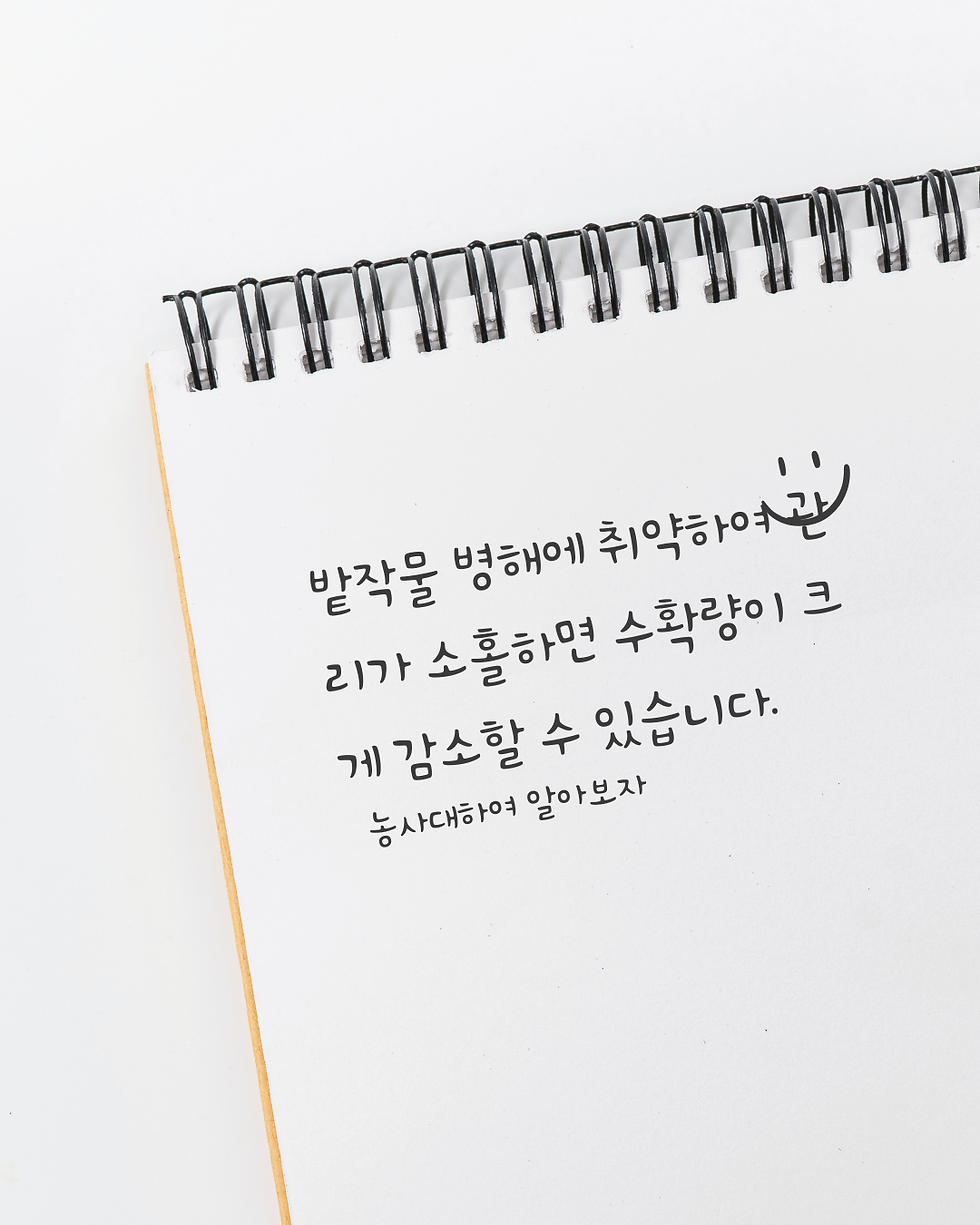 밭작물 병해에 취약하여 관
리가 소홀하면 수확량이 크
게 감소할 수 있습니다.
농사대하여 알아보자